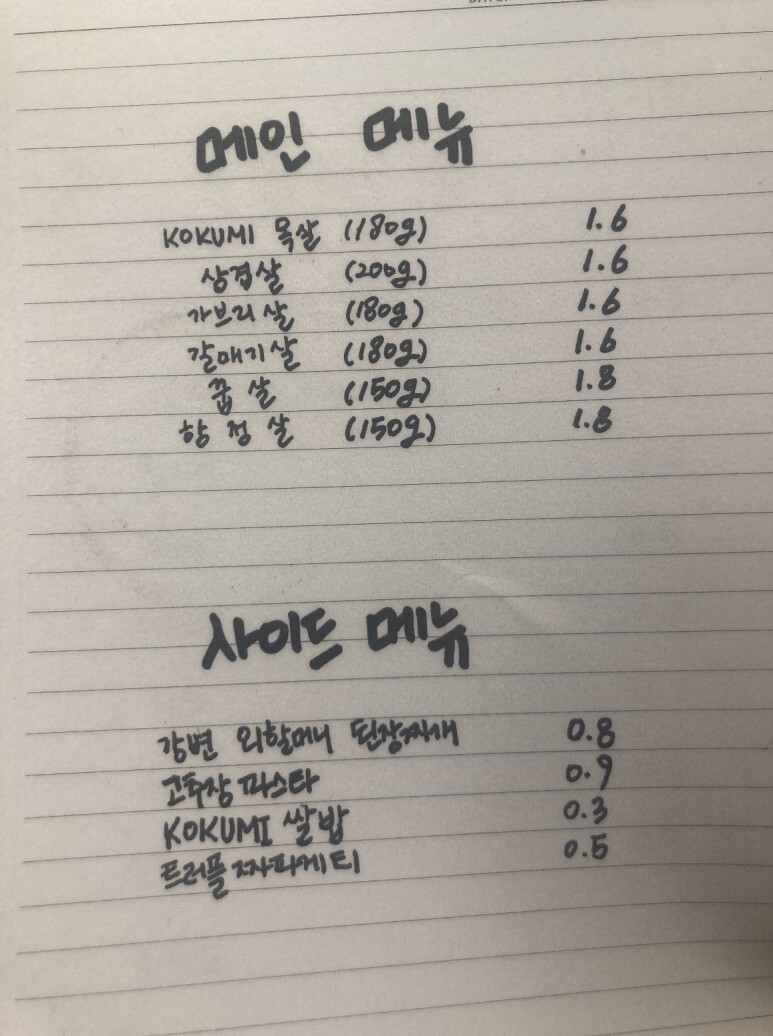 메인 메뉴
KOKUMI 목살 (180g) 1.6
삼겹살 (200g) 1.6
가브리살 (180g) 1.6
갈매기살 (180g) 1.6
꿉살 (150g) 1.8
항정살 (150g) 1.8
사이드 메뉴
강변 외할머니 된장찌개 0.8
고추장 파스타 0.9
KOKUMI 쌀밥 0.3
트러플 짜파게티 0.5